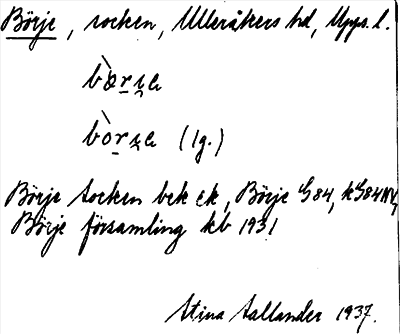 Börje, socken, Ulleråkers hd, Upps. l.
(lg.)
Börje socken bek ek, Börje G84, kG84NV,
Börje församling kb 1931
Stina Sallander 1937.